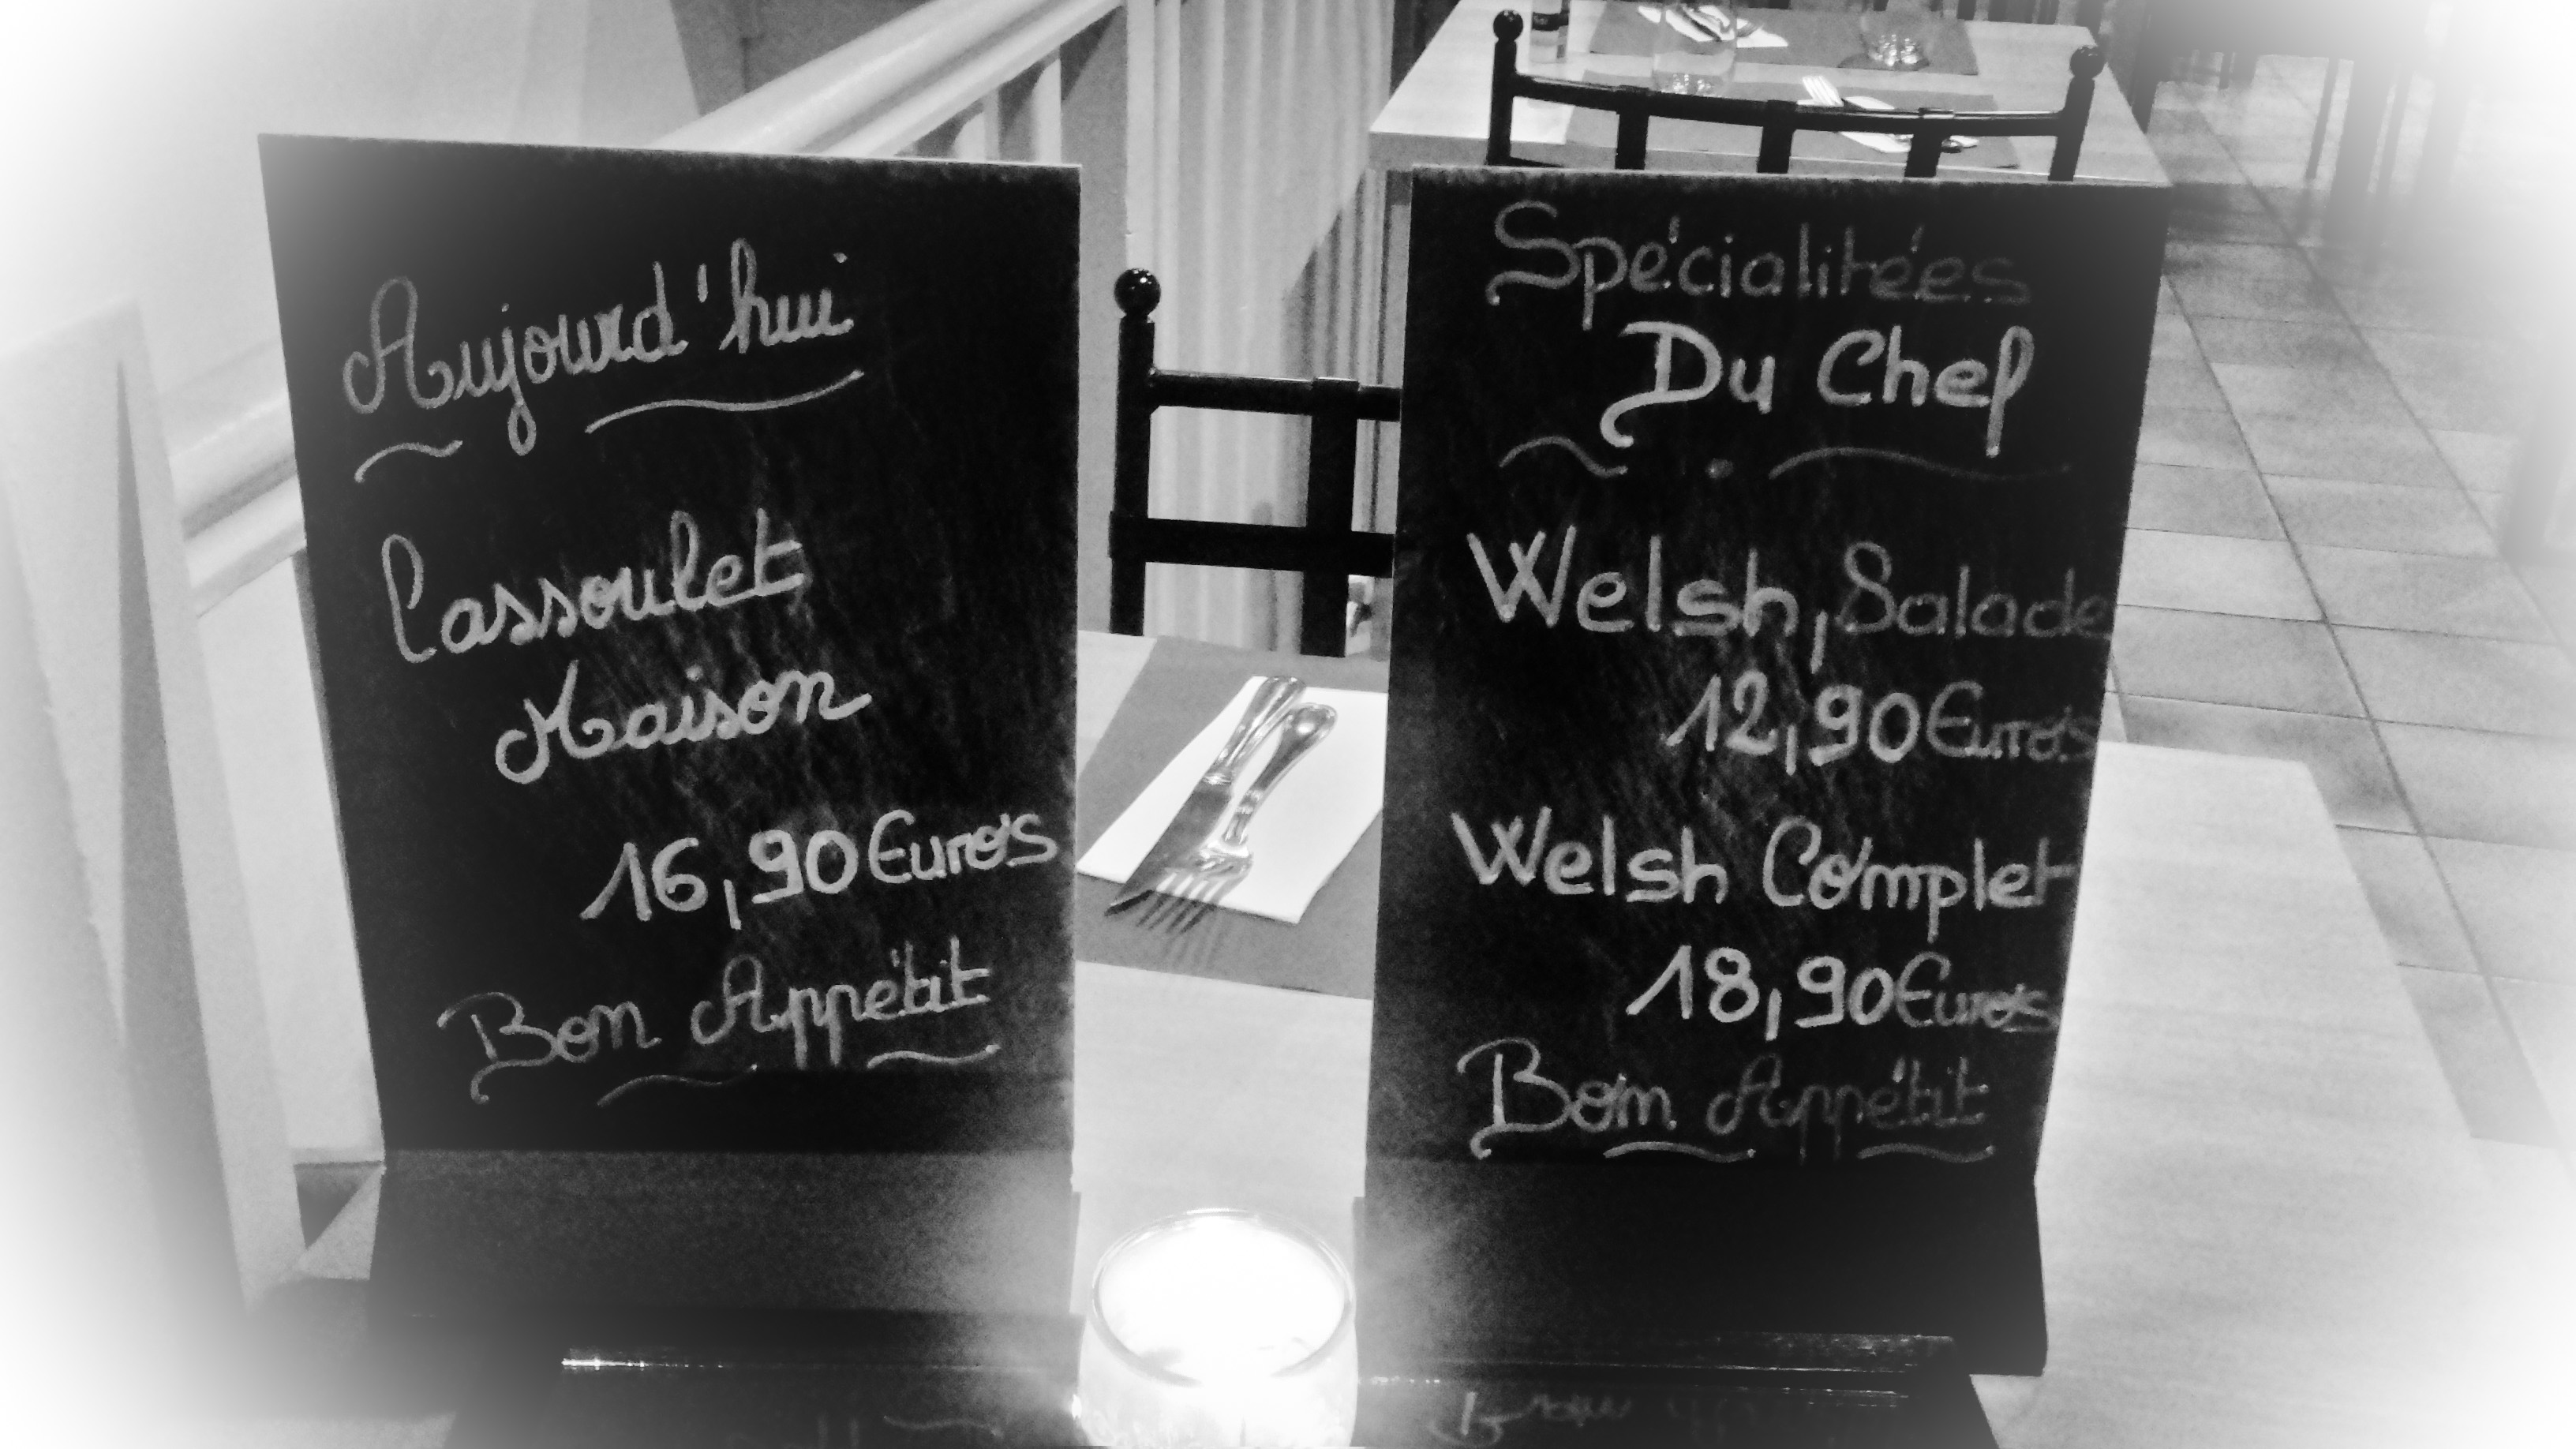 Aujourd'hui
Cassoulet
Maison
16,90 Euros
Bon Appétit
Spécialitées
Du Chef
Welsh, Salade
12,90 Euros
Welsh Complet
18,90 Euros
Bon Appétit